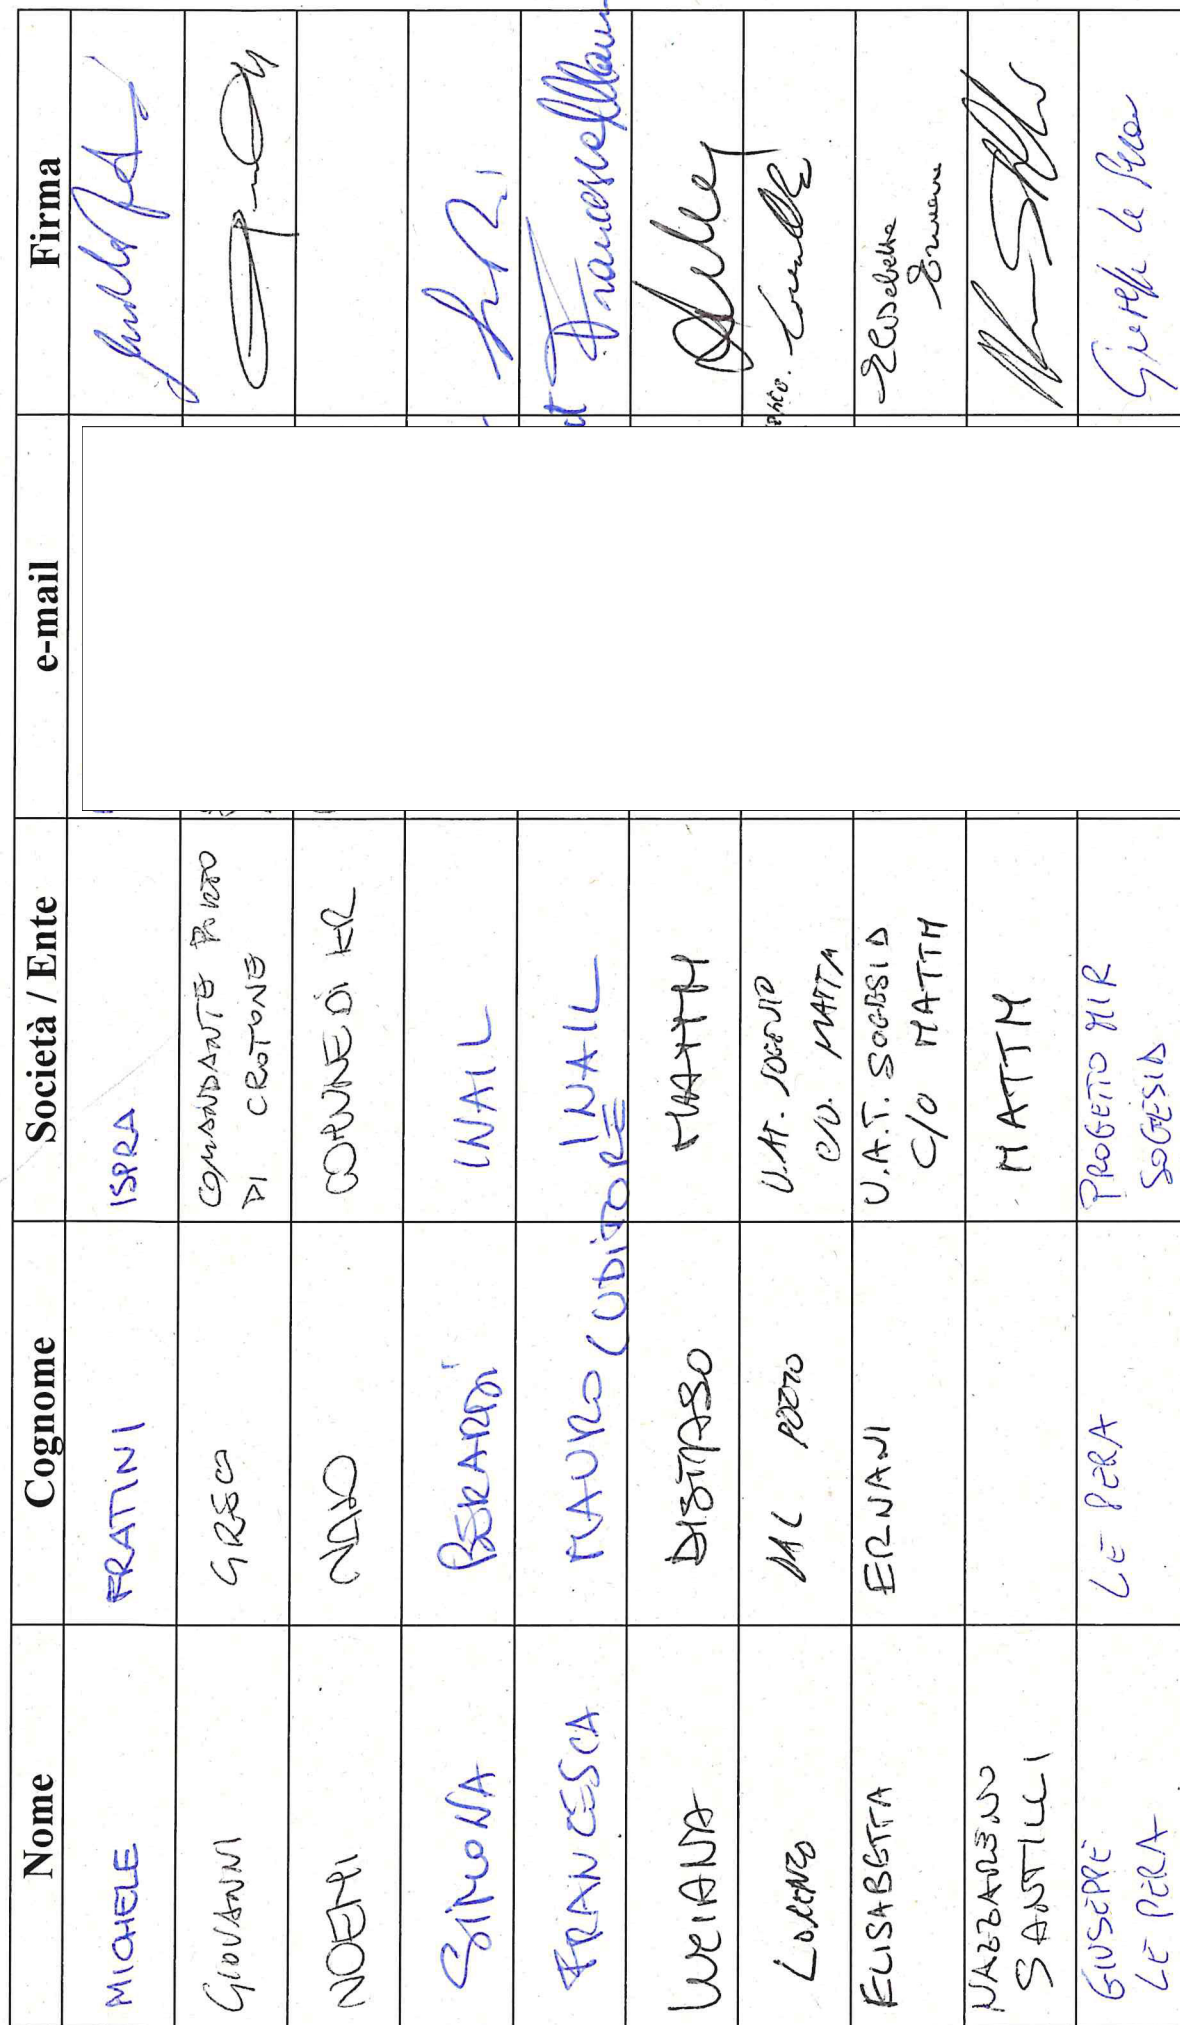 Nome Cognome Società / Ente e-mail Firma
MICHELE FRATINI ISPRA
GIOVANNI GRECO COMANDANTE PORTO
DI CROTONE
NOEMI COMUNE DI KR
SIMONA BERARDI INAIL
FRANCESCA MAURO (UDITORE INAIL Francesca Mauro
LUCIANA DISTASO MATTM
LORENZO U.A.T. SOGESID
C/O MATTM
ELISABETTA ERNANI U.A.T. SOGESID Elisabetta
C/O MATTM
NAZZARENO MATTM
SANTILLI
GIUSEPPE LE PERA PROGETTO MIR Giuseppe Le Pera
LE PERA SOGESID